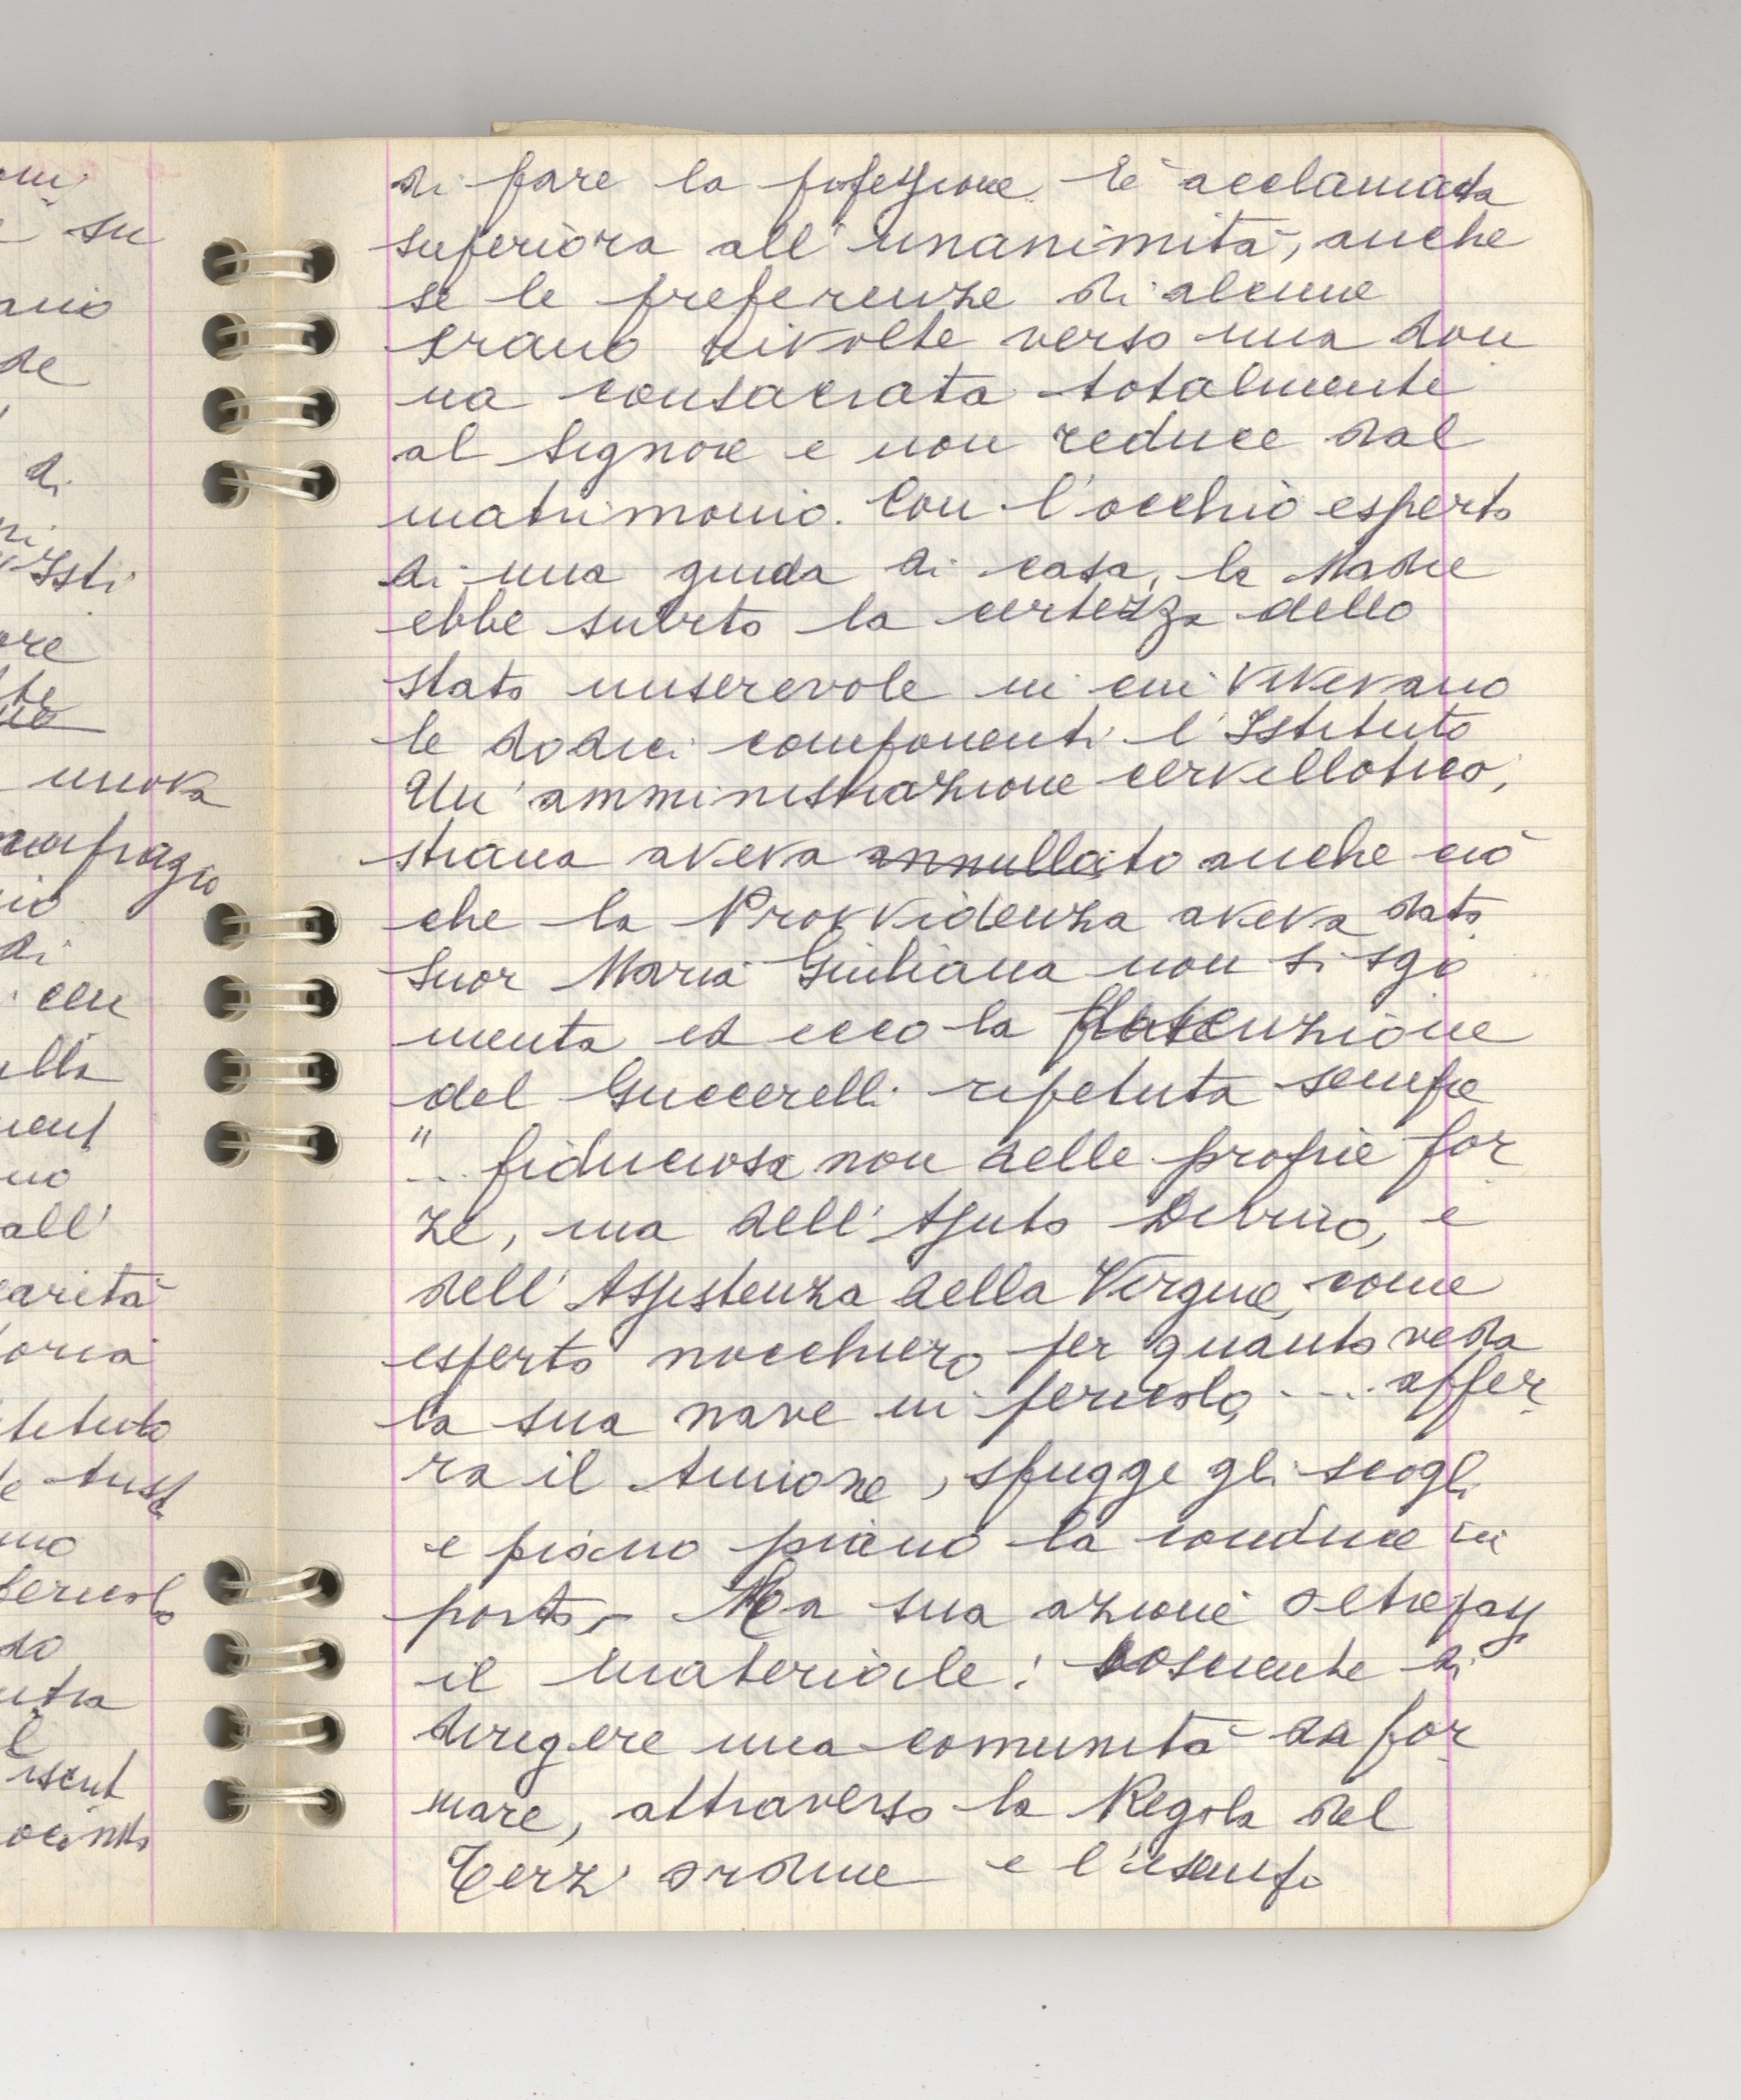 di fare la professione. È acclamata
superiora all'unanimità, anche
se le preferenze di alcune
erano rivolte verso una don
na consacrata totalmente
al Signore e non reduce dal
matrimonio. Con l'occhio esperto
di una guida di casa, la Madre
ebbe subito la certezza dello
stato miserevole in cui vivevano
le dodici componenti l'Istituto
Un'amministrazione cervellotica,
strana aveva annullato anche ciò
che la Provvidenza aveva dato
Suor Maria Giuliana non si sgo
menta ed ecco la
del Guccerelli ripetuta sempre
"... fiduciosa non delle proprie for
ze, ma dell'Ajuto Divino, e
dell'Assistenza della Vergine, come
esperto nocchiero per quanto veda
la sua nave in pericolo .... affer
ra il timone, sfugge gli scogli
e piano piano la conduce in
porto,- La sua azione oltrepass
il materiale: cosciente di
dirigere una comunità da for
mare, attraverso la Regola del
Terz'ordine e l'esempio
su
de
di
Isti
nuova
di
all'
carità